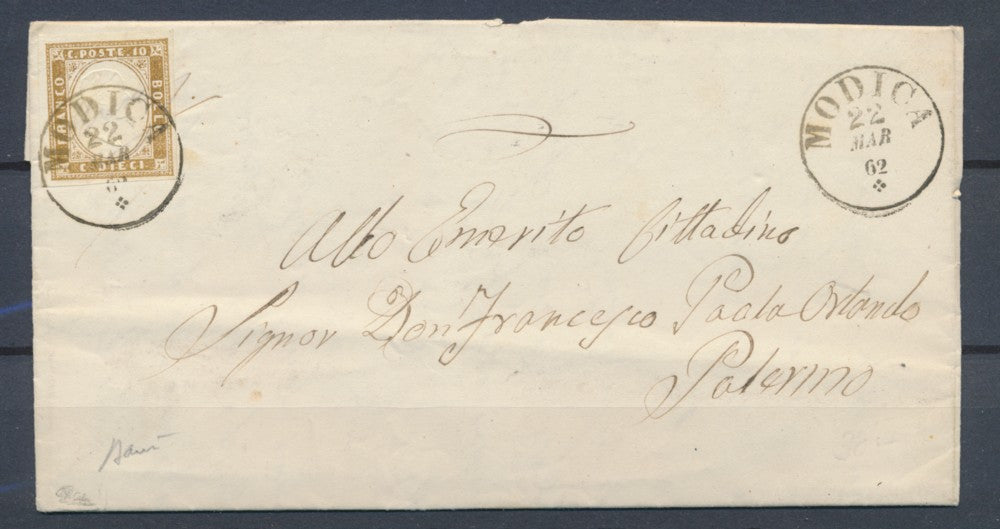 C. POSTE. 10
FRANCO
BOLL
C. DIECI
MODICA
22
MAR
62
MODICA
22
MAR
62
Allo Emerito Cittadino
Signor Don Francesco Paolo Orlando
Palermo